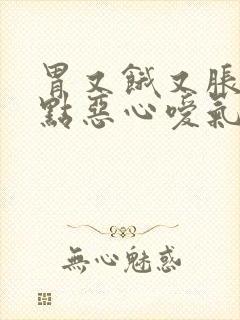 胃又餓又脹
點惡心噯氣
無心魅惑